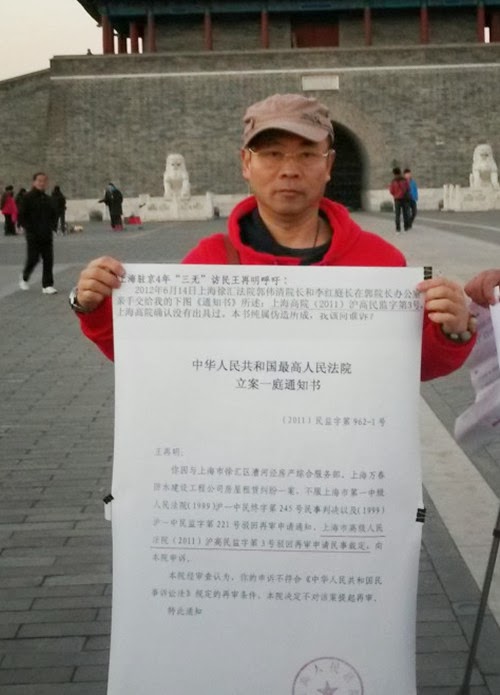 上海驻京4年“三无”访民王再明呼吁：
2012年6月14日上海徐汇法院郭伟清院长和李红庭长在郭院长办公室
亲手交给我的下图《通知书》所述：上海高院（2011）沪高民监字第3号，
上海高院确认没有出具过。本书纯属伪造所成，我该问谁诉？
中华人民共和国最高人民法院
立案一庭通知书
（2011）民监字第962-1号
王再明：
你因与上海市徐汇区漕河泾房产综合服务部、上海万泰
防水建设工程公司房屋租赁纠纷一案，不服上海市第一中级
人民法院(1999)沪一中民终字第245号民事判决以及(1999)
沪一中民监字第221号驳回再审申请通知、上海市高级人民
法院（2011）沪高民监字第3号驳回再审申请民事裁定，向
本院申诉。
本院经审查认为，你的申诉不符合《中华人民共和国民
事诉讼法》规定的再审条件，本院决定不对该案提起再审。
特此通知
人民法